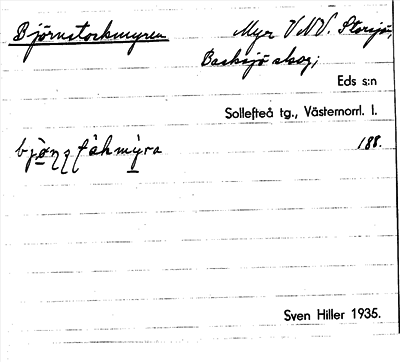 Björnstockmyren Myr V.N.V. Storsjö,
Backsjö skog;
Eds s:n
Sollefteå tg., Västernorrl. l.
188.
Sven Hiller 1935.